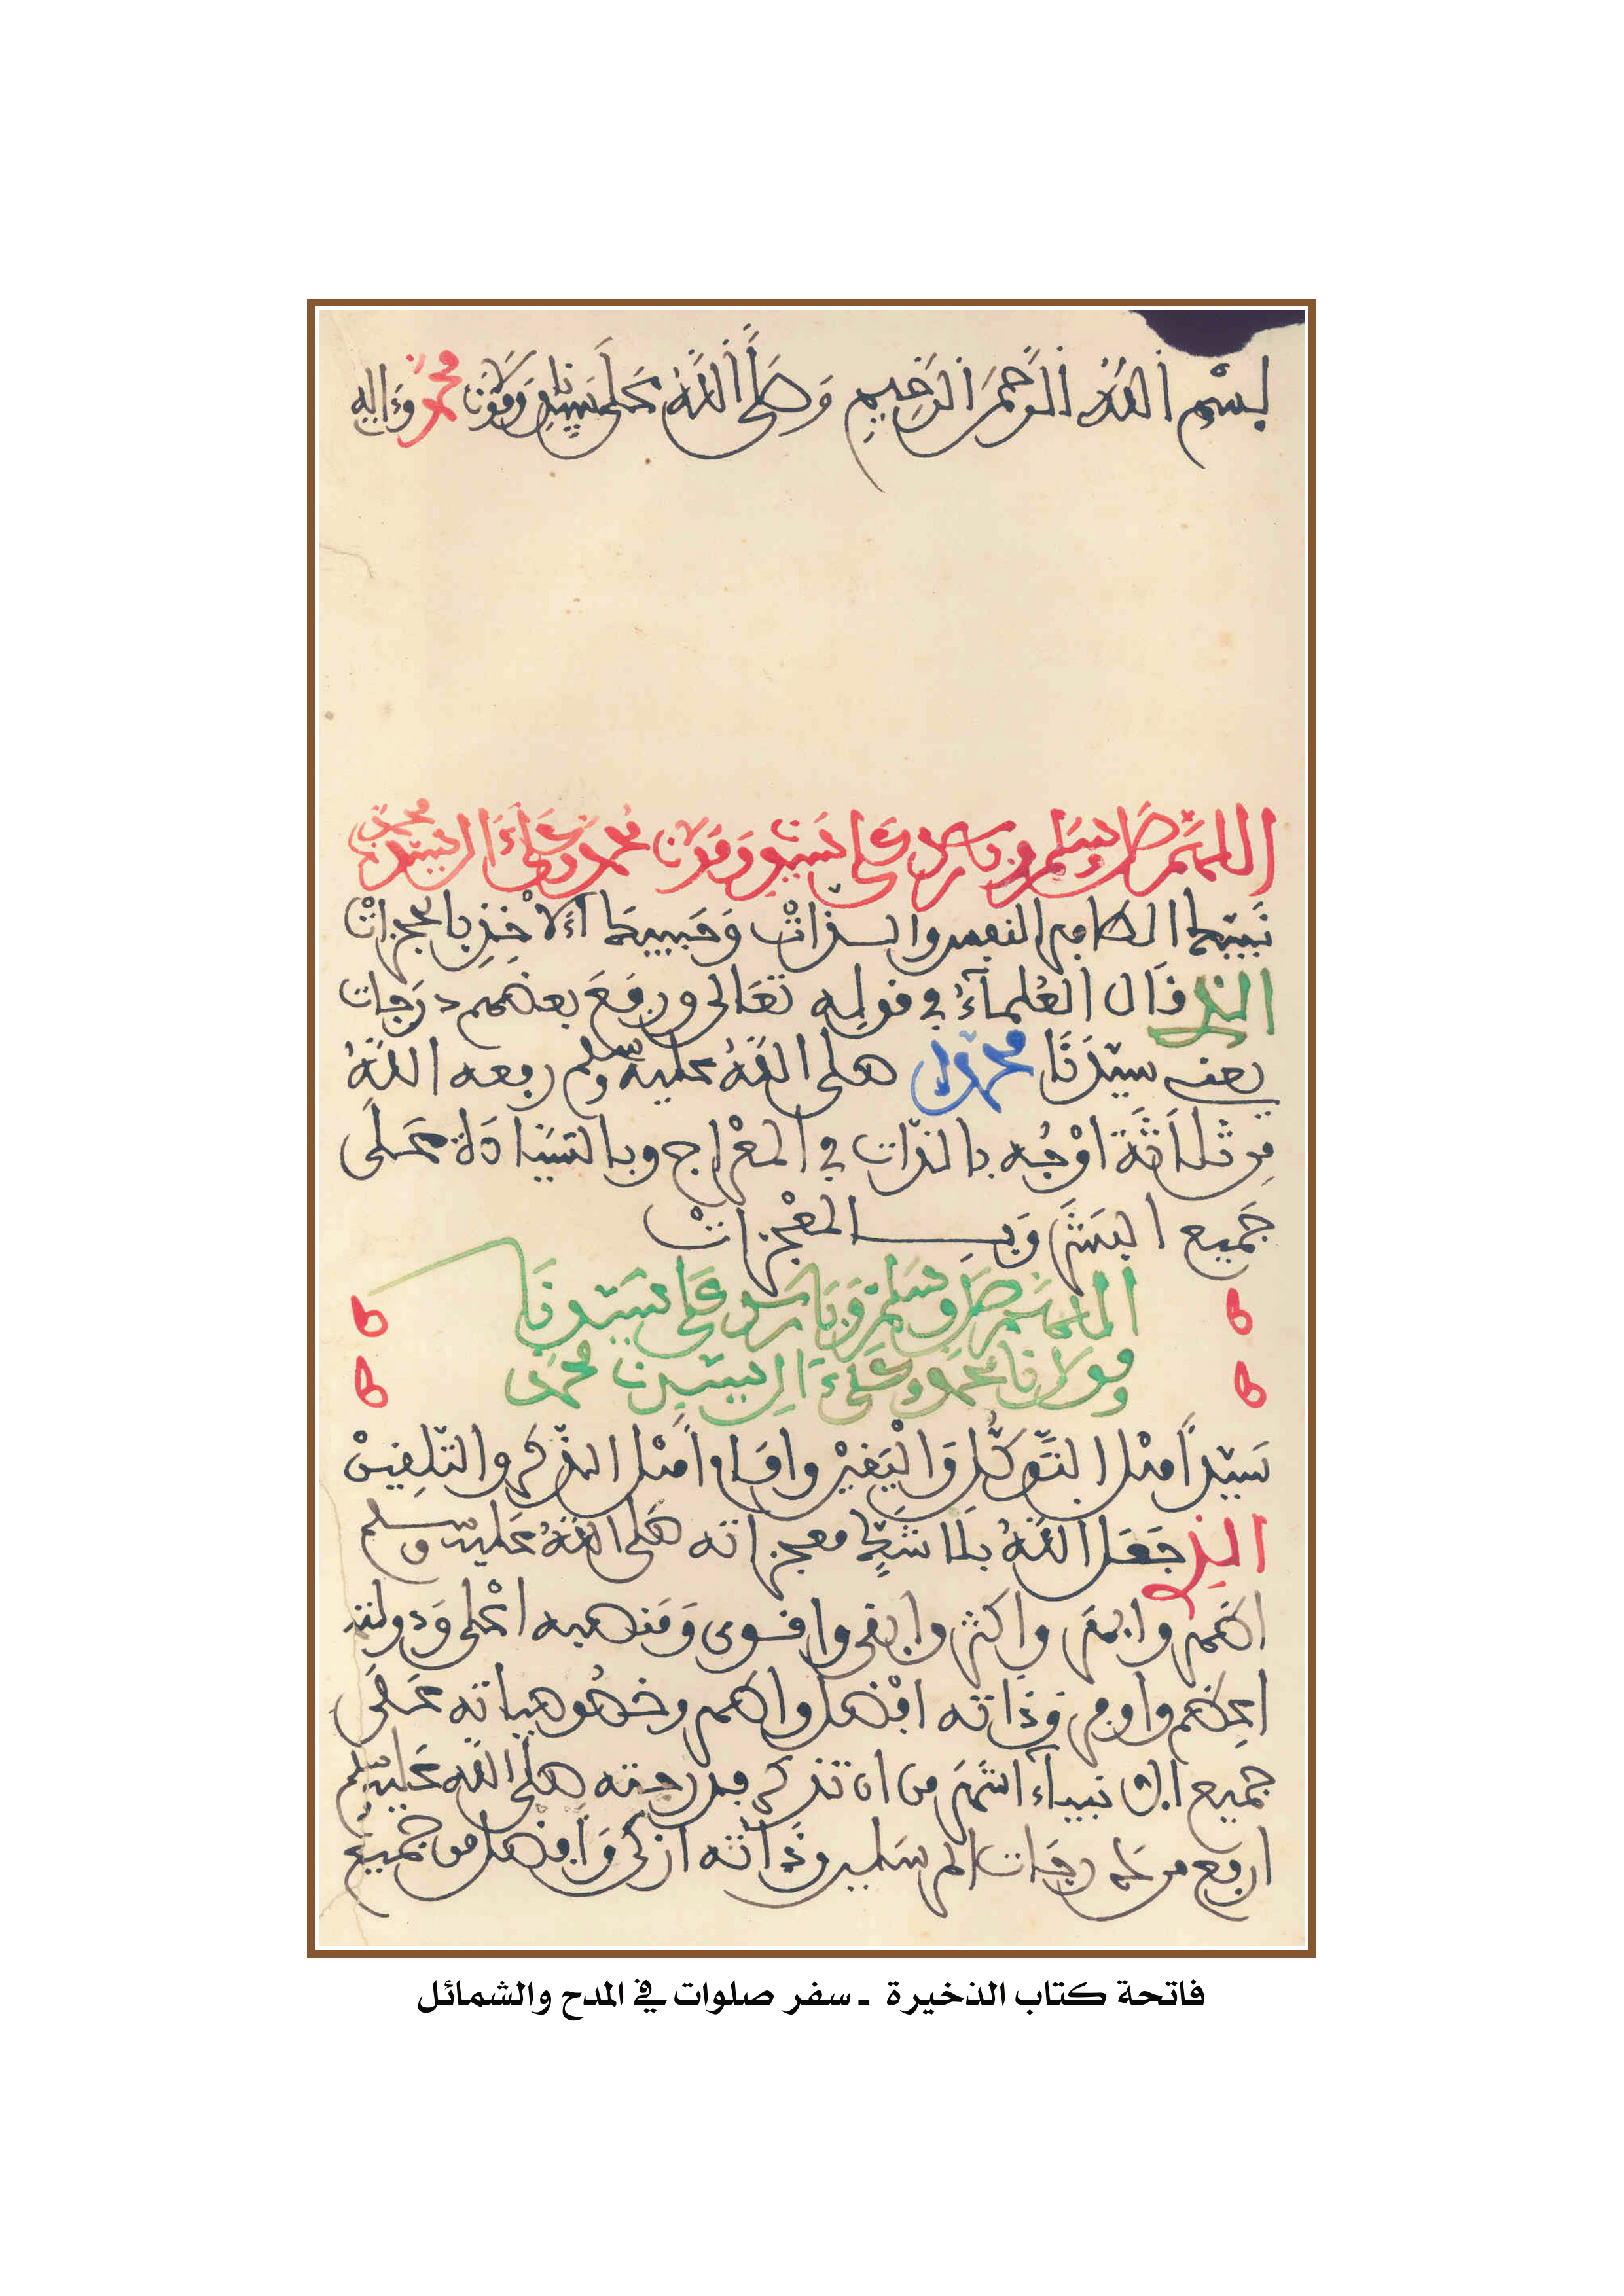 بِسْمِ اللَّهِ الرَّحْمَنِ الرَّحِيمِ وَصَلَّى اللَّهُ عَلَى سَيِّدِنَا وَمَوْلَانَا مُحَمَّدٍ وَءَالِهِ
اللَّهُمَّ صَلِّ وَسَلِّمْ وَبَارِكْ عَلَى سَيِّدِنَا وَمَوْلَانَا مُحَمَّدٍ وَعَلَى ءَالِ سَيِّدِنَا مُحَمَّدٍ
نَبِيِّكَ الطاهر النفس والذات وَحَبِيبِكَ
الذي قَالَ العُلَمَاءُ في قولِهِ تَعَالى ورَفَعَ بعضهم دَرَجات
يعني سيّدَنَا محمّدا صلى اللَّهُ عليه وسلم رفعه اللَّهُ
مِن ثلاثَةَ اوْجُه بالذّات في المعْرَاج وبالسّيَادَة عَلَى
جَمِيع البَشَر وَبِالمعْجِزَاتْ
اللَّهُمَّ صَلِّ وَسَلِّمْ وَبَارِكْ عَلَى سَيِّدِنَا
ومولانا محمد وعَلَى ءَالِ سيّدنا محمّد
سَيِّدِ أهْل التَّوَكُّلِ وَالْيَقِينْ وإمَام أهْل الذّكر والتّلقِينْ
الذِي جَعَلَ اللَّهُ معجزاته صَلى اللَّهُ عَليه وسلم
اظهر وابهَر واكثر وابقى واقوى وَمَنصبه اعْلى وَدولته
اعظم واوفر وَذَاته افضل واطهر وخصُوصياته عَلَى
جميع الانبياء اشهَر من ان تذكر فدرجته صلى الله عَليه وسلم
ارفع من درجَات المرسَلين وذَاته ازكى وَافضل من جميع
فاتحة كتاب الذخيرة - سفر صلوات في المدح والشمائل